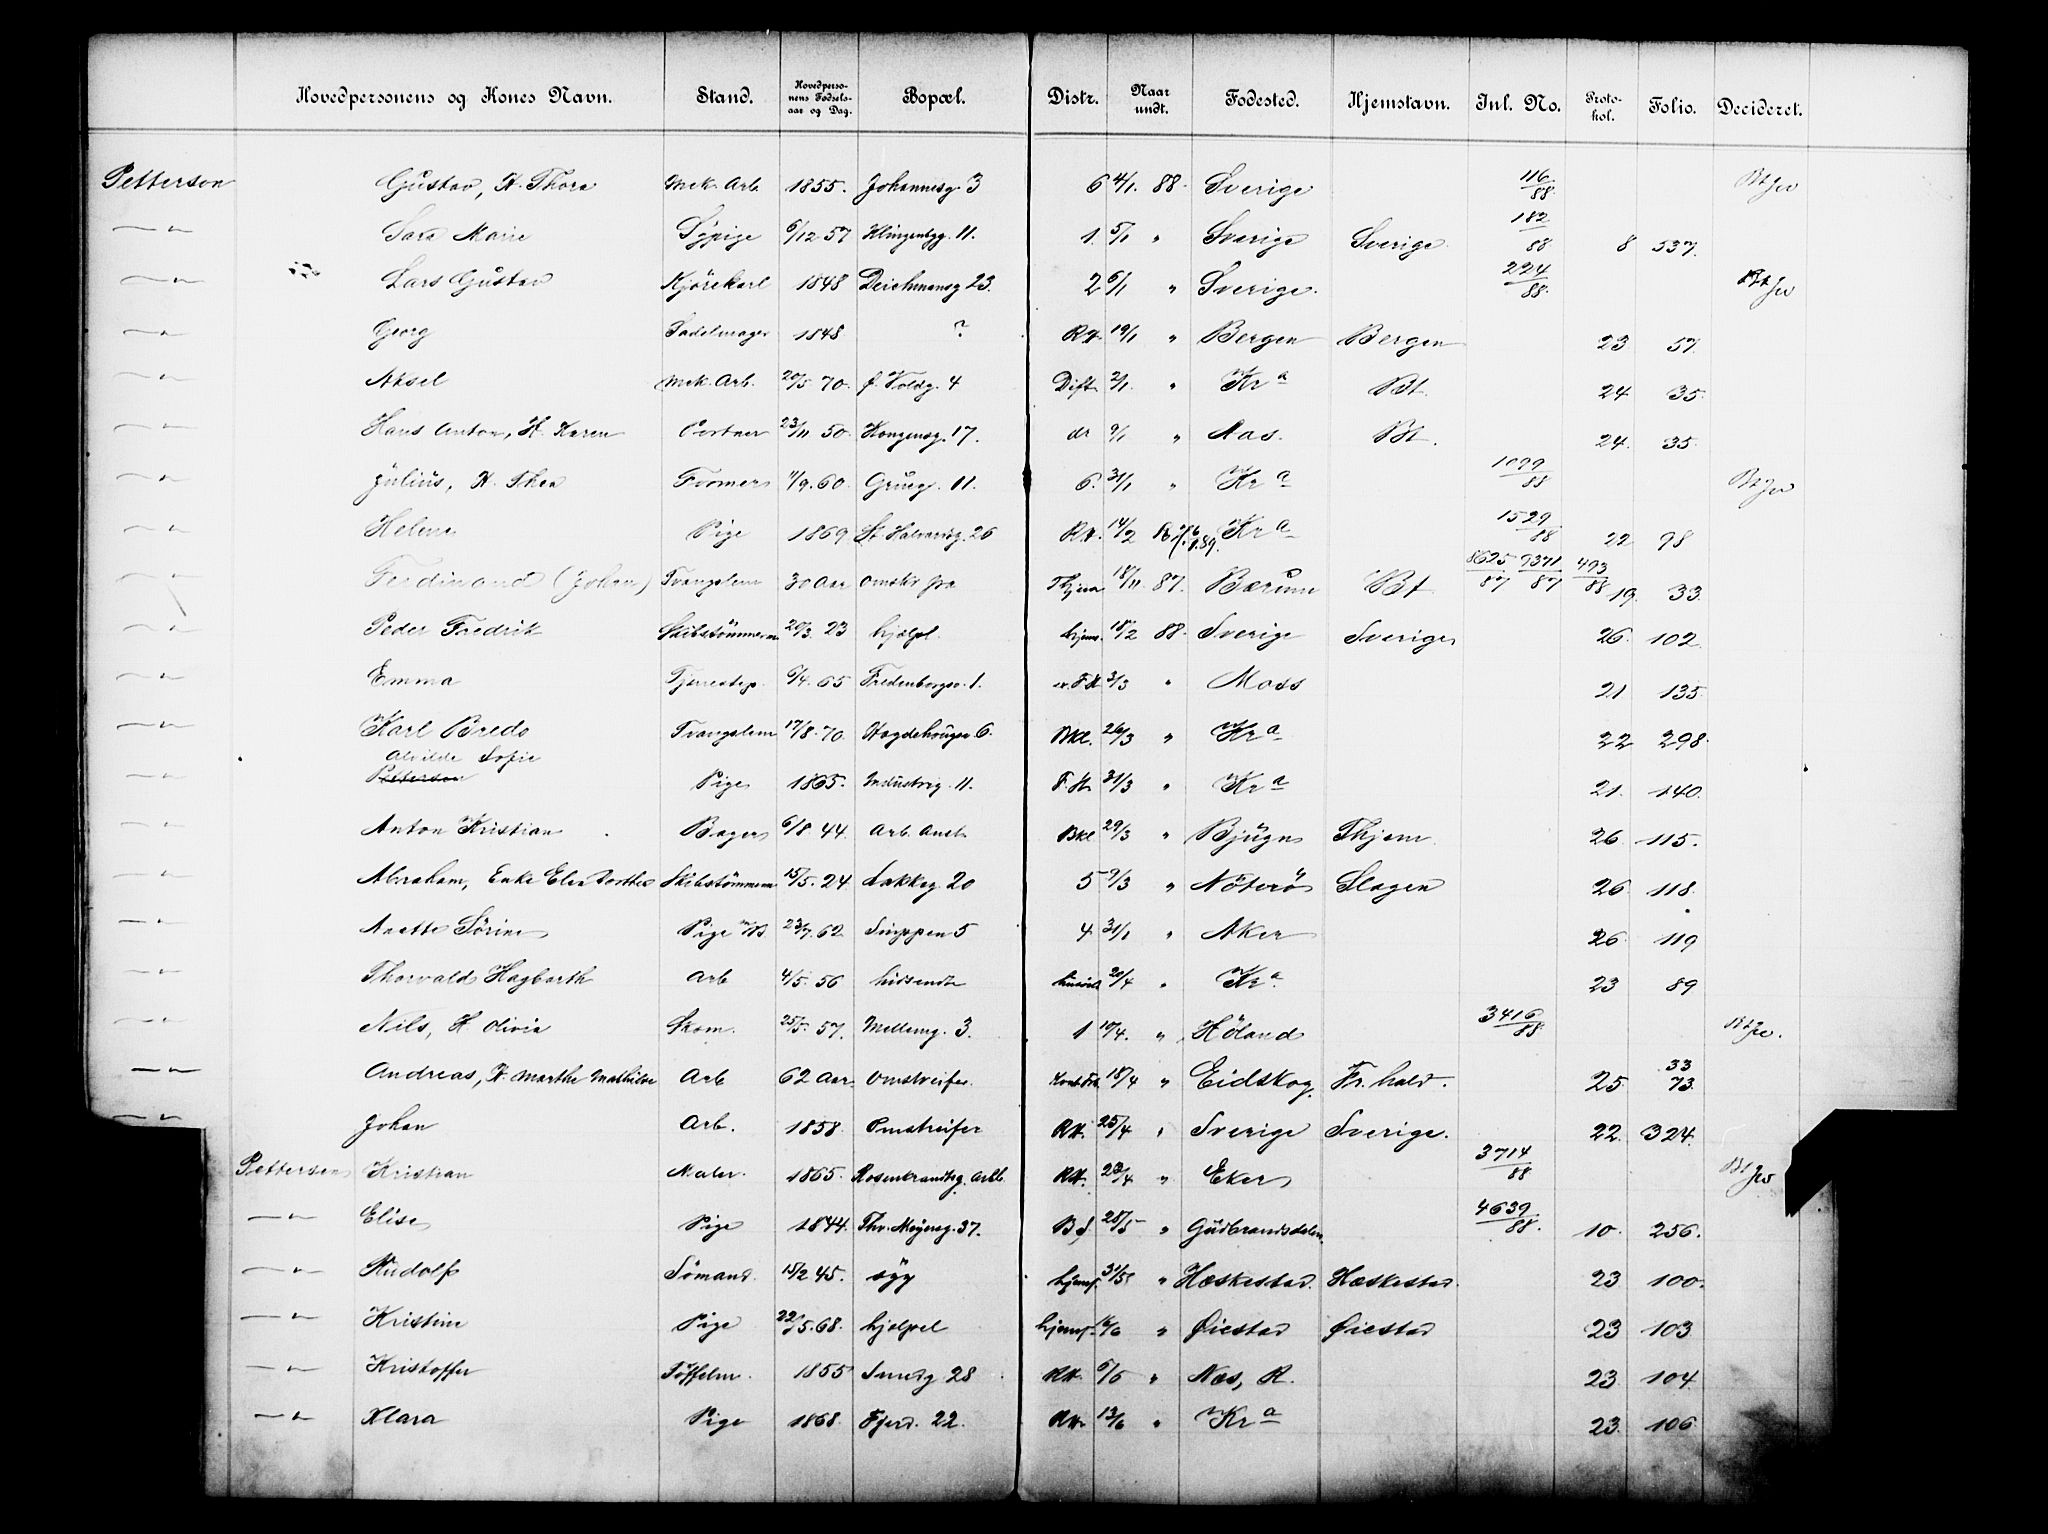 Hovedpersonens og Kones Navn. Stand. Hovedpersonens Fødselsaar og Dag. Bopæl. Distr. Naar undt. Fødested. Hjemstavn. Inl. No. Protokol. Folio. Decideret.
Petterson Gustav, H. Thora Mek. Arb. 1855. Johannesg. 3 6 4/1 88. Sverige 116/88
—"— Sara Marie Sypige 6/12 57 Klingenbgg. 11. 1. 5/1 " Sverige Sverige 182/88 8 537.
—"— Lars Gustav Kjörekarl 1848 Deichmansg 23. 2 6/1 " Sverige. 224/88.
—"— Georg Sadelmager 1848 ? RK. 19/1 " Bergen Bergen 23 57.
—"— Aksel Mek. Arb. 20/5 70. f. Voldg. 4 Dift. 2/1 " Kra Bt. 24 35.
—"— Hans Anton, H. Karen Portner 23/11 50. Kongensg. 17. do 9/1 " Aas. Bt. 24. 35.
—"— Julius, H. Thea Formers 11/9. 60. Grueg. 11. 6. 31/1 " Kra 1099/88
—"— Helene Pige 1869 St. Halvardsg. 26 RK. 14/2 Kra 1529/88 22 98
—"— Ferdinand (Johan) Tvangslem 30 Aar omstr. fra Thjem 18/11. 87. Bærum Bt 8625/87 9371/87 493/88 19. 33.
—"— Peder Fredrik Skibstömmerm 20/3. 23 hjælpl. hjems. 18/2 88. Sverige Sverige 26. 102.
—"— Emma Tjenestep. 6/4. 65 Fredenborgv. 1. 3/3 " Moss 21 135
—"— Karl Bredo Tvangslem 17/8. 70. Hegdehaugsv 6. Bkl. 26/3 " Kra 22 298.
—"— Alvilde Sofie Petterson Pige 1865. Industrig. 11. F. H. 31/3 " Kra 21. 140.
—"— Anton Kristian Bagers 6/8 44. Arb. Anst. Bkl 29/3 " Bjugn Thjem. 26. 115.
—"— Abraham, Enke Elen Dorthea Skibstömmerm 15/5. 24. Lakkeg. 20 5 9/3 " Nöterö Slagen 26. 118.
—"— Anette Sörine Pige 23/7. 62. Snippen 5 4. 31/1 " Aker 26. 119
—"— Thorvald Hagbarth Arb 4/5. 56 hidsendt 20/4 " Kra. 23 89
—"— Nils, H. Olivia Skom. 25/5. 57. Mellemg. 3. 1 10/4. " Höland 3416/88
—"— Andreas, H. Marthe Mathilde Arb 62 Aar. omstreifer. 18/4 " Eidskog. Fr.hald. 25. 33 73.
—"— Johan Arb. 1858. Omstreifer RK. 25/4 " Sverige Sverige. 22. 324.
Pettersen Kristian Maler. 1865. Rosenkrantzg. Arbb. RK. 23/4 " Eker 3714/88
—"— Elise Pige 1844. Thv. Meyersg. 37. 28/5 " Gudbrandsdalen. 4639/88. 10. 256.
—"— Rudolf Sömand. 15/2 45. syg hjemf. 31/5 " Hæskestad. Hæskestad. 23 100.
—"— Kristine Pige 22/5. 68. hjælpel hjemf. " Øiestad Øiestad 23 103
—"— Kristoffer Töffelm. 1855 Smedg 28 RK. 6/6 " Næs, R. 23. 104.
—"— Klara Pige 1868. Fjerd. 22. RK. 13/6 " Kra 23. 106.